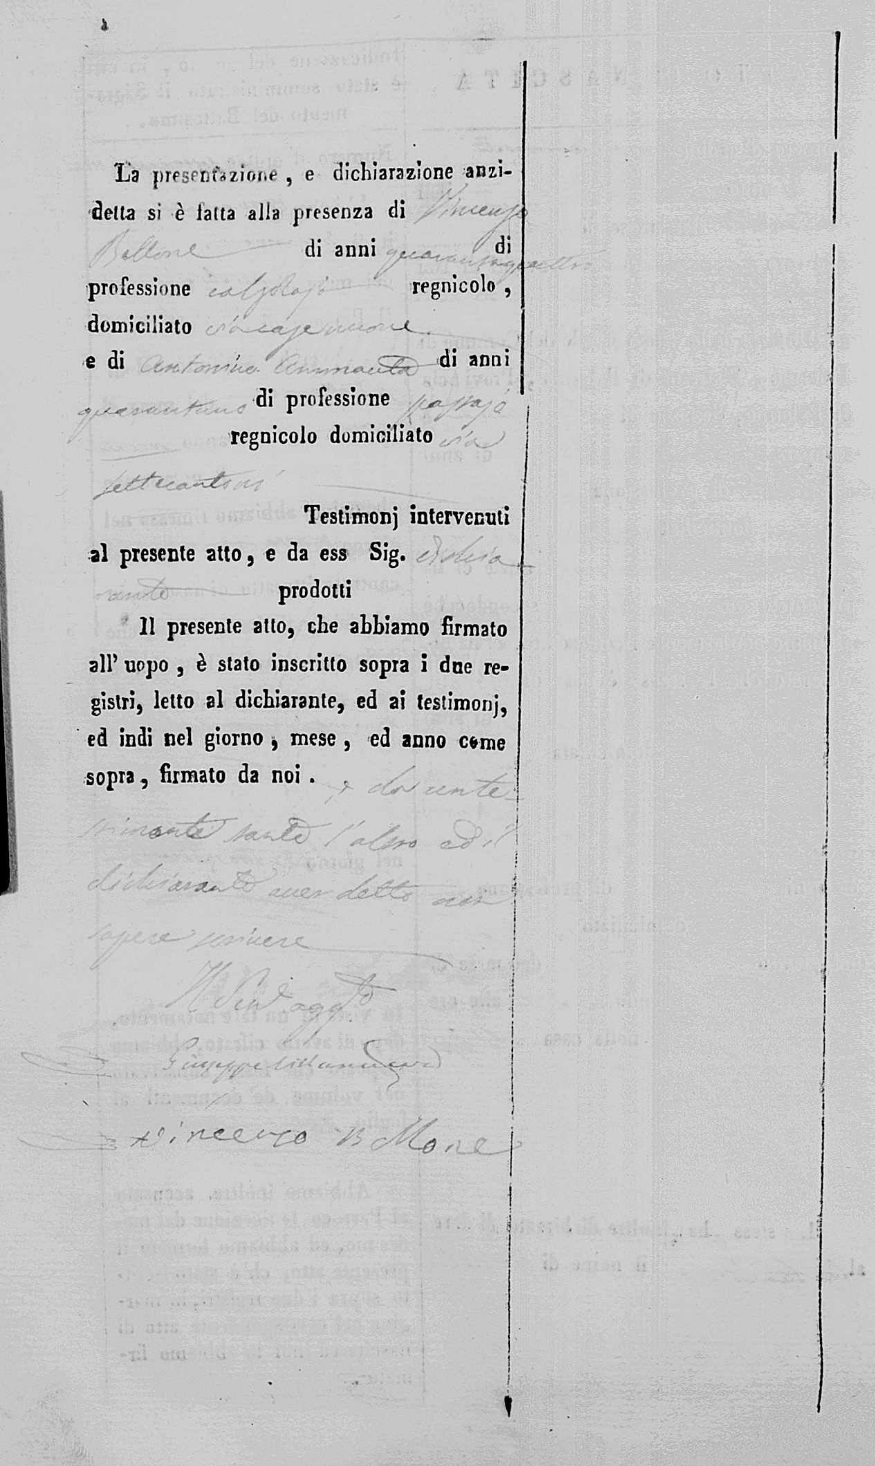 La presentazione, e dichiarazione anzi-
detta si è fatta alla presenza di Vincenzo
Bellone di anni quarantaquattro di
professione calzolajo regnicolo,
domiciliato via
e di Antonino Ammanta di anni
quarantuno di professione
regnicolo domiciliato via
settecantoni
Testimonj intervenuti
al presente atto, e da ess Sig. dichia
rante prodotti
Il presente atto, che abbiamo firmato
all' uopo, è stato inscritto sopra i due re-
gistri, letto al dichiarante, ed ai testimonj,
ed indi nel giorno, mese, ed anno come
sopra, firmato da noi.
l'altro ed il
dichiarante aver detto non
sapere scrivere
Il Sind aggto
Giuseppe
Vincenzo Bellone